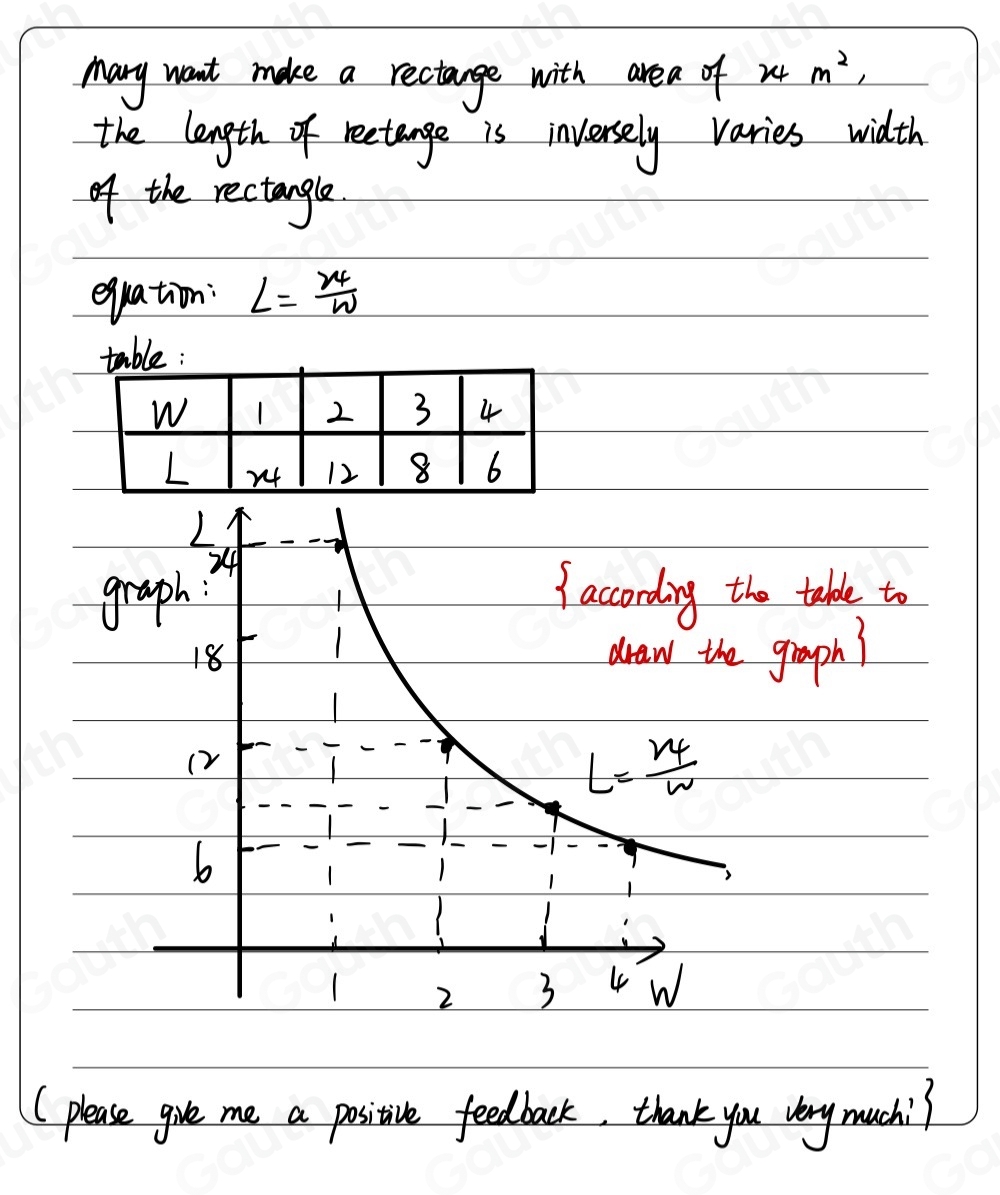 Mary want make a rectange with area of 24 m²,
the length of reetange is inversely varies width
of the rectangle.
equation: L = 24/W
table:
W 1 2 3 4
L 24 12 8 6
L
24
graph:
{according the table to
draw the graph}
18
12
L = 24/W
6
1 2 3 4 W
(please give me a positive feedback, thank you very much!}